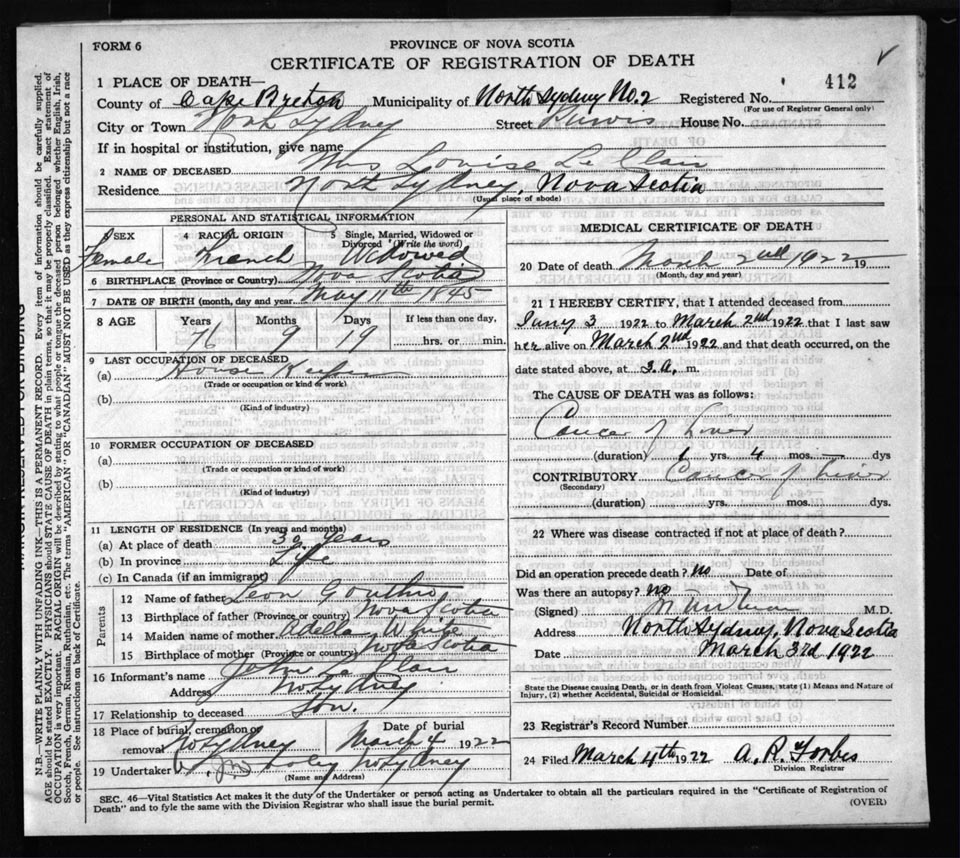 FORM 6
PROVINCE OF NOVA SCOTIA
CERTIFICATE OF REGISTRATION OF DEATH
412
1 PLACE OF DEATH—
County of Cape Breton Municipality of North Sydney No. 2 Registered No.
(For use of Registrar General only)
City or Town North Sydney Street House No.
If in hospital or institution, give name
2 NAME OF DECEASED Mrs Louise Le Clair
Residence North Sydney, Nova Scotia
(Usual place of abode)
PERSONAL AND STATISTICAL INFORMATION
3 SEX Female
4 RACIAL ORIGIN French
5 Single, Married, Widowed or Divorced (Write the word) Widowed
6 BIRTHPLACE (Province or Country) Nova Scotia
7 DATE OF BIRTH (month, day and year) May 11th 1845
8 AGE Years Months Days If less than one day,
76 9 19 hrs. or min.
9 LAST OCCUPATION OF DECEASED
(a) House Keeper
(Trade or occupation or kind of work)
(b)
(Kind of industry)
10 FORMER OCCUPATION OF DECEASED
(a)
(Trade or occupation or kind of work)
(b)
(Kind of industry)
11 LENGTH OF RESIDENCE (In years and months)
(a) At place of death 30 years
(b) In province Life
(c) In Canada (if an immigrant)
Parents
12 Name of father Leon Gouthro
13 Birthplace of father (Province or country) Nova Scotia
14 Maiden name of mother Adella White
15 Birthplace of mother (Province or country) Nova Scotia
16 Informant's name John Le Clair
Address No Sydney
17 Relationship to deceased Son.
18 Place of burial, cremation or removal No Sydney
Date of burial March 4 1922
19 Undertaker No Sydney
(Name and Address)
MEDICAL CERTIFICATE OF DEATH
20 Date of death March 2nd 1922 19
(Month, day and year)
21 I HEREBY CERTIFY, that I attended deceased from
Jany 3 1922 to March 2nd 1922 that I last saw
her alive on March 2nd 1922 and that death occurred, on the
date stated above, at A. m.
The CAUSE OF DEATH was as follows:
Cancer of Liver
(duration) yrs. 4 mos. — dys
CONTRIBUTORY Cancer of Liver
(Secondary)
(duration) yrs. mos. dys.
22 Where was disease contracted if not at place of death?
Did an operation precede death? No Date of
Was there an autopsy? No
(Signed) M.D.
Address North Sydney, Nova Scotia
Date March 3rd 1922
State the Disease causing Death, or in death from Violent Causes, state (1) Means and Nature of
Injury, (2) whether Accidental, Suicidal or Homicidal.
23 Registrar's Record Number
24 Filed March 4th 1922 A. R. Forbes
Division Registrar
SEC. 46—Vital Statistics Act makes it the duty of the Undertaker or person acting as Undertaker to obtain all the particulars required in the "Certificate of Registration of
Death" and to fyle the same with the Division Registrar who shall issue the burial permit.
(OVER)
MARGIN RESERVED FOR BINDING
N.B.—WRITE PLAINLY WITH UNFADING INK—THIS IS A PERMANENT RECORD. Every item of information should be carefully supplied.
AGE should be stated EXACTLY. PHYSICIANS should STATE CAUSE OF DEATH in plain terms, so that it may be properly classified. Exact statement of
OCCUPATION is very important. RACIAL ORIGIN will be described by stating to what people or tongue the deceased person belonged whether English, Irish,
Scotch, French, German, Russian, Ruthenian, etc. The terms "AMERICAN" OR "CANADIAN" MUST NOT BE USED as they express citizenship but not a race
or people. See instructions on back of Certificate.